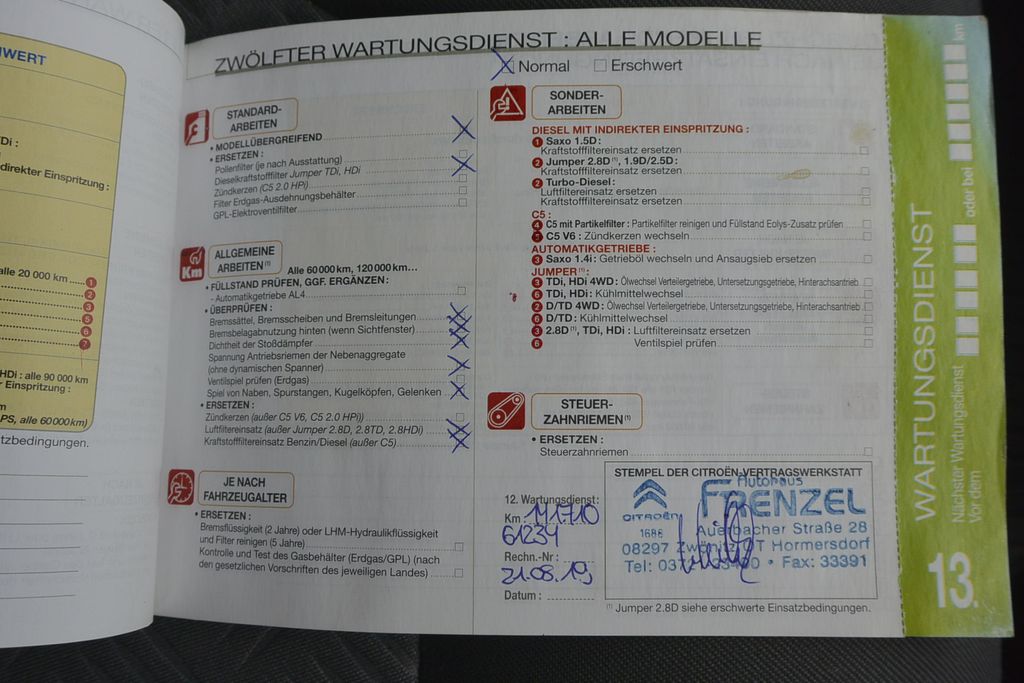 WERT
Di :
direkter Einspritzung :
alle 20 000 km
1
2
3
5
6
7
HDi : alle 90 000 km
r Einspritzung :
m
PS, alle 60000km)
tzbedingungen.
ZWÖLFTER WARTUNGSDIENST : ALLE MODELLE
Normal Erschwert
STANDARD-
ARBEITEN
• MODELLÜBERGREIFEND
• ERSETZEN :
Pollenfilter (je nach Ausstattung)
Dieselkraftstofffilter Jumper TDi, HDi
Zündkerzen (C5 2.0 HPi)
Filter Erdgas-Ausdehnungsbehälter
GPL-Elektroventilfilter
Km
ALLGEMEINE
ARBEITEN(1)
Alle 60000 km, 120000 km...
• FÜLLSTAND PRÜFEN, GGF. ERGÄNZEN :
- Automatikgetriebe AL4
• ÜBERPRÜFEN :
Bremssättel, Bremsscheiben und Bremsleitungen
Bremsbelagabnutzung hinten (wenn Sichtfenster)
Dichtheit der Stoßdämpfer
Spannung Antriebsriemen der Nebenaggregate
(ohne dynamischen Spanner)
Ventilspiel prüfen (Erdgas)
Spiel von Naben, Spurstangen, Kugelköpfen, Gelenken
• ERSETZEN :
Zündkerzen (außer C5 V6, C5 2.0 HPi))
Luftfiltereinsatz (außer Jumper 2.8D, 2.8TD, 2.8HDi)
Kraftstofffiltereinsatz Benzin/Diesel (außer C5)
JE NACH
FAHRZEUGALTER
• ERSETZEN :
Bremsflüssigkeit (2 Jahre) oder LHM-Hydraulikflüssigkeit
und Filter reinigen (5 Jahre)
Kontrolle und Test des Gasbehälter (Erdgas/GPL) (nach
den gesetzlichen Vorschriften des jeweiligen Landes)
SONDER-
ARBEITEN
DIESEL MIT INDIREKTER EINSPRITZUNG :
1 Saxo 1.5D :
Kraftstofffiltereinsatz ersetzen
2 Jumper 2.8D (1), 1.9D/2.5D :
Kraftstofffiltereinsatz ersetzen
2 Turbo-Diesel :
Luftfiltereinsatz ersetzen
Kraftstofffiltereinsatz ersetzen
C5 :
4 C5 mit Partikelfilter : Partikelfilter reinigen und Füllstand Eolys-Zusatz prüfen
5 C5 V6 : Zündkerzen wechseln
AUTOMATIKGETRIEBE :
3 Saxo 1.4i : Getriebeöl wechseln und Ansaugsieb ersetzen
JUMPER(1) :
3 TDi, HDi 4WD : Ölwechsel Verteilergetriebe, Untersetzungsgetriebe, Hinterachsantrieb
6 TDi, HDi : Kühlmittelwechsel
2 D/TD 4WD : Ölwechsel Verteilergetriebe, Untersetzungsgetriebe, Hinterachsantrieb
6 D/TD : Kühlmittelwechsel
3 2.8D (1), TDi, HDi : Luftfiltereinsatz ersetzen
6 Ventilspiel prüfen
STEUER-
ZAHNRIEMEN(1)
• ERSETZEN :
Steuerzahnriemen
12. Wartungsdienst :
Km : 141.710
61234
Rechn.-Nr :
21.08.19
Datum :
STEMPEL DER CITROËN-VERTRAGSWERKSTATT
CITROËN
1688
Autohaus
FRENZEL
Auerbacher Straße 28
08297 Zwönitz OT Hormersdorf
Tel: • Fax: 33391
(1) Jumper 2.8D siehe erschwerte Einsatzbedingungen.
WARTUNGSDIENST
13.
Nächster Wartungsdienst
Vor dem
oder bei
km